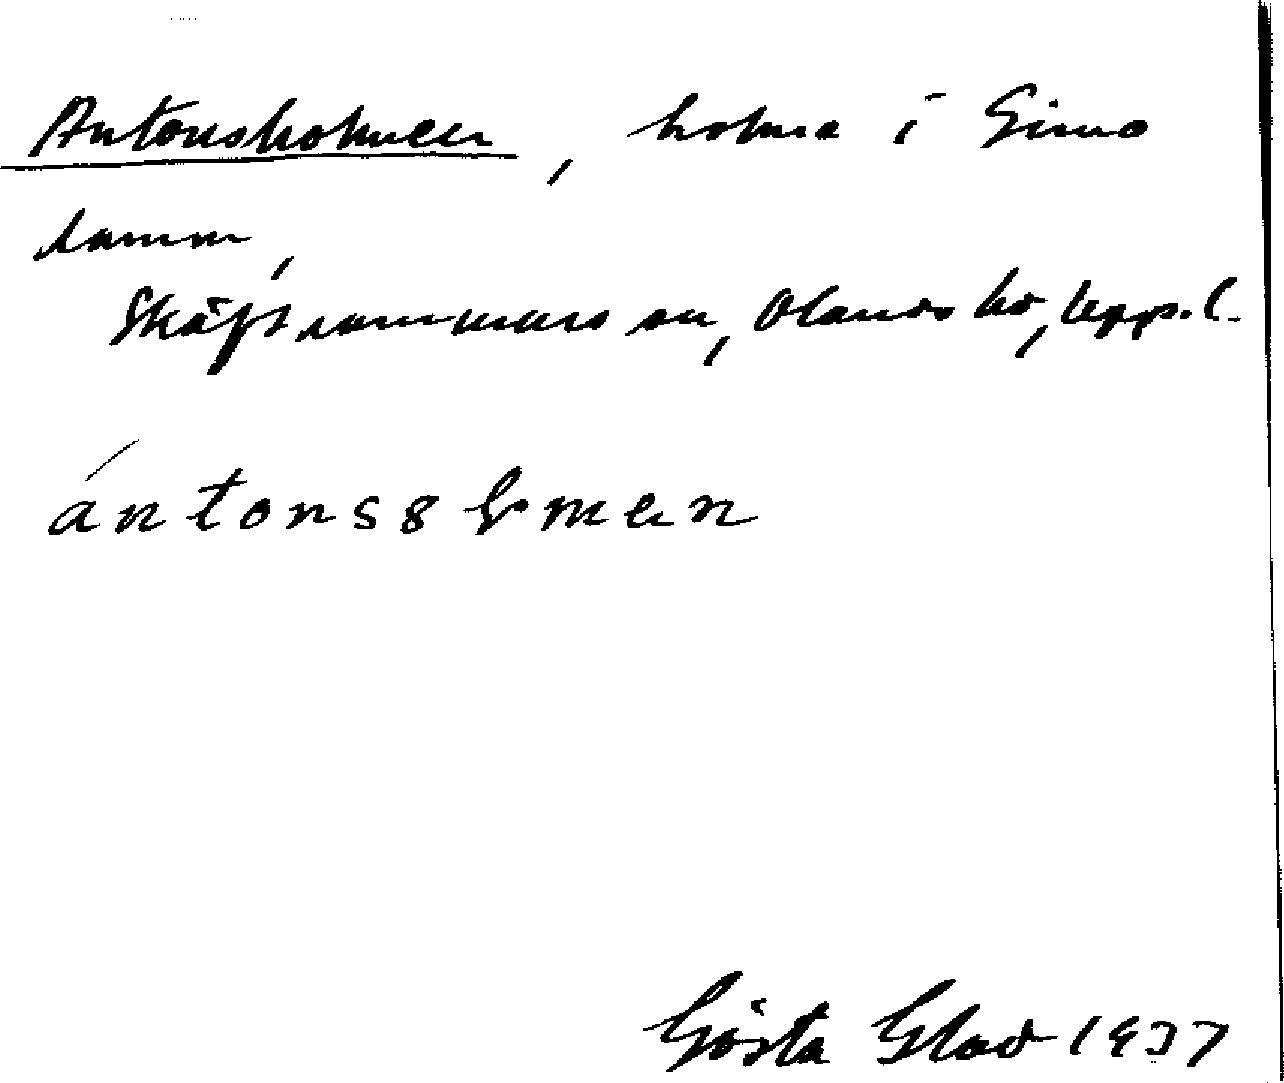 Antonsholmen, holme i Gimo
damm,
Skäfthammars sn, Olands hd, Uppl.
ántons8lmen
Gösta Glad 1937